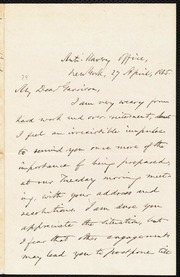 Anti-Slavery Office,
New York, 27 April, 1865
My Dear Garrison,
I am very weary from
hard work and over-excitement, but
I feel an irresistible impulse
to remind you once more of the
importance of being prepared,
at our Tuesday morning meet-
ing, with your address and
resolutions. I am sure you
appreciate the situation, but
I fear that other engagements
may lead you to postpone the